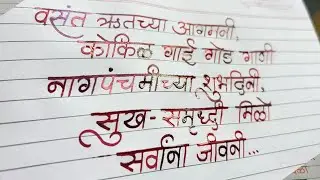 वसंत ऋतच्या आगमनी,
कोकिळ गाई गोड गाणी
नागपंचमीच्या शुभदिनी,
सुख-समृध्दी मिळो
सर्वांना जीवनी...